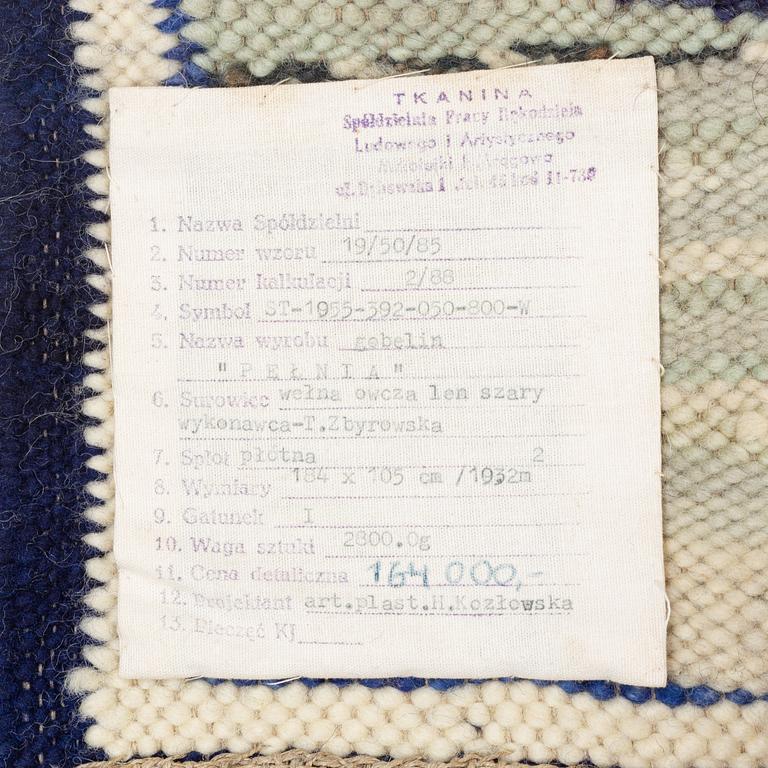 TKANINA
Spółdzielnia Pracy Rękodzieła
Ludowego i Artystycznego
ul. 1
1. Nazwa Spółdzielni
2. Numer wzoru 19/50/85
3. Numer kalkulacji 2/88
4. Symbol ST-1955-392-050-800-W
5. Nazwa wyrobu gobelin
"PEŁNIA"
6. Surowiec wełna owcza len szary
wykonawca-T.Zbyrowska
7. Splot płótna 2
8. Wymiary 184 x 105 cm /1932m
9. Gatunek I
10. Waga sztuki 2800.0g
11. Cena detaliczna 164 000,-
12. Projektant art.plast.H.Kozłowska
13. Pieczęć KJ